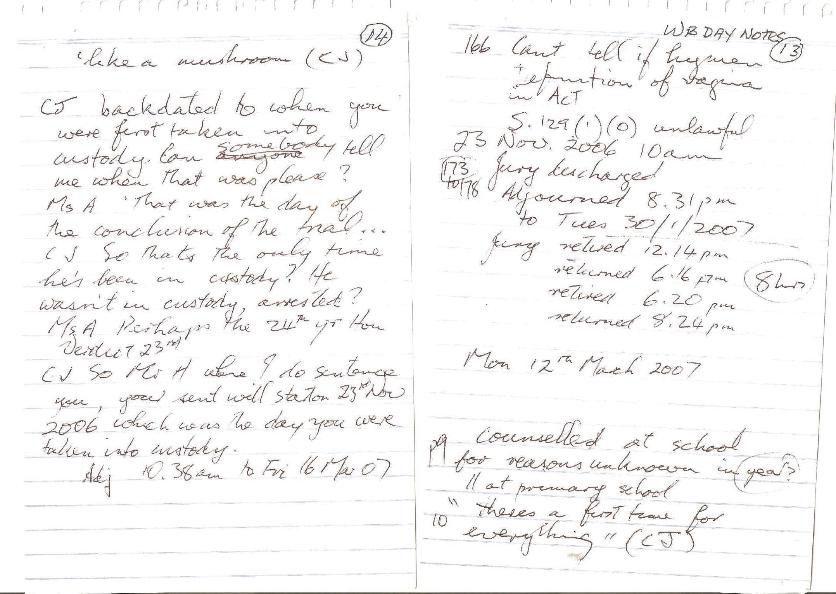 14
'like a mushroom (CJ)
CJ backdated to when you
were first taken into
custody. Can somebody tell
me when that was please?
Ms A 'That was the day of
the conclusion of the trial...
CJ So thats the only time
he's been in custody? He
wasn't in custody, arrested?
Ms A Perhaps the 24th yr Hon
Verdict 23rd
CJ So Mr H when I do sentence
you, your sent will start on 23rd Nov
2006 which was the day you were
taken into custody.
Adj 10.38am to Fri 16 Mar 07
WB DAY NOTES 13
166 Cant tell if hymen
definition of vagina
in Act
S.129(1)(0) unlawful
23 Nov. 2006 10am
173 to 178 Jury discharged
Adjourned 8.31pm
to Tues 30/1/2007
Jury retired 12.14pm
returned 6.16pm 8hrs
retired 6.20 pm
returned 8.24pm
Mon 12th March 2007
counselled at school
for reasons unknown in year?
11 at primary school
10 "theres a first time for
everything" (CJ)